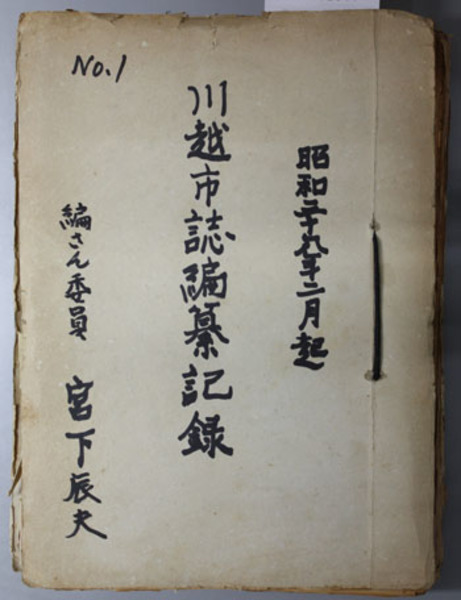 No.1
昭和二十九年二月起
川越市誌編纂記録
編さん委員 宮下辰夫